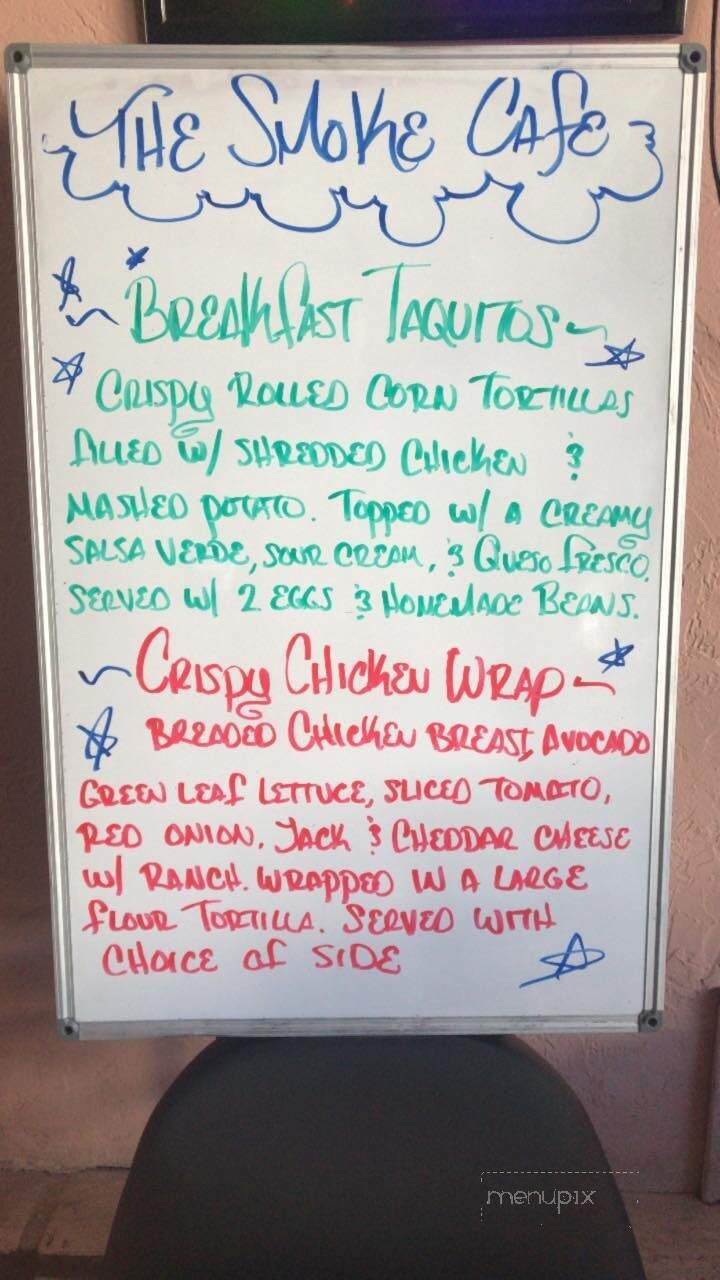 THE SMOKE CAFE
BREAKFAST TAQUITOS
CRISPY ROLLED CORN TORTILLAS
FILLED W/ SHREDDED CHICKEN &
MASHED POTATO. TOPPED W/ A CREAMY
SALSA VERDE, SOUR CREAM, & QUESO FRESCO.
SERVED W/ 2 EGGS & HOMEMADE BEANS.
CRISPY CHICKEN WRAP
BREADED CHICKEN BREAST, AVOCADO
GREEN LEAF LETTUCE, SLICED TOMATO,
RED ONION, JACK & CHEDDAR CHEESE
W/ RANCH. WRAPPED IN A LARGE
FLOUR TORTILLA. SERVED WITH
CHOICE OF SIDE
menupix